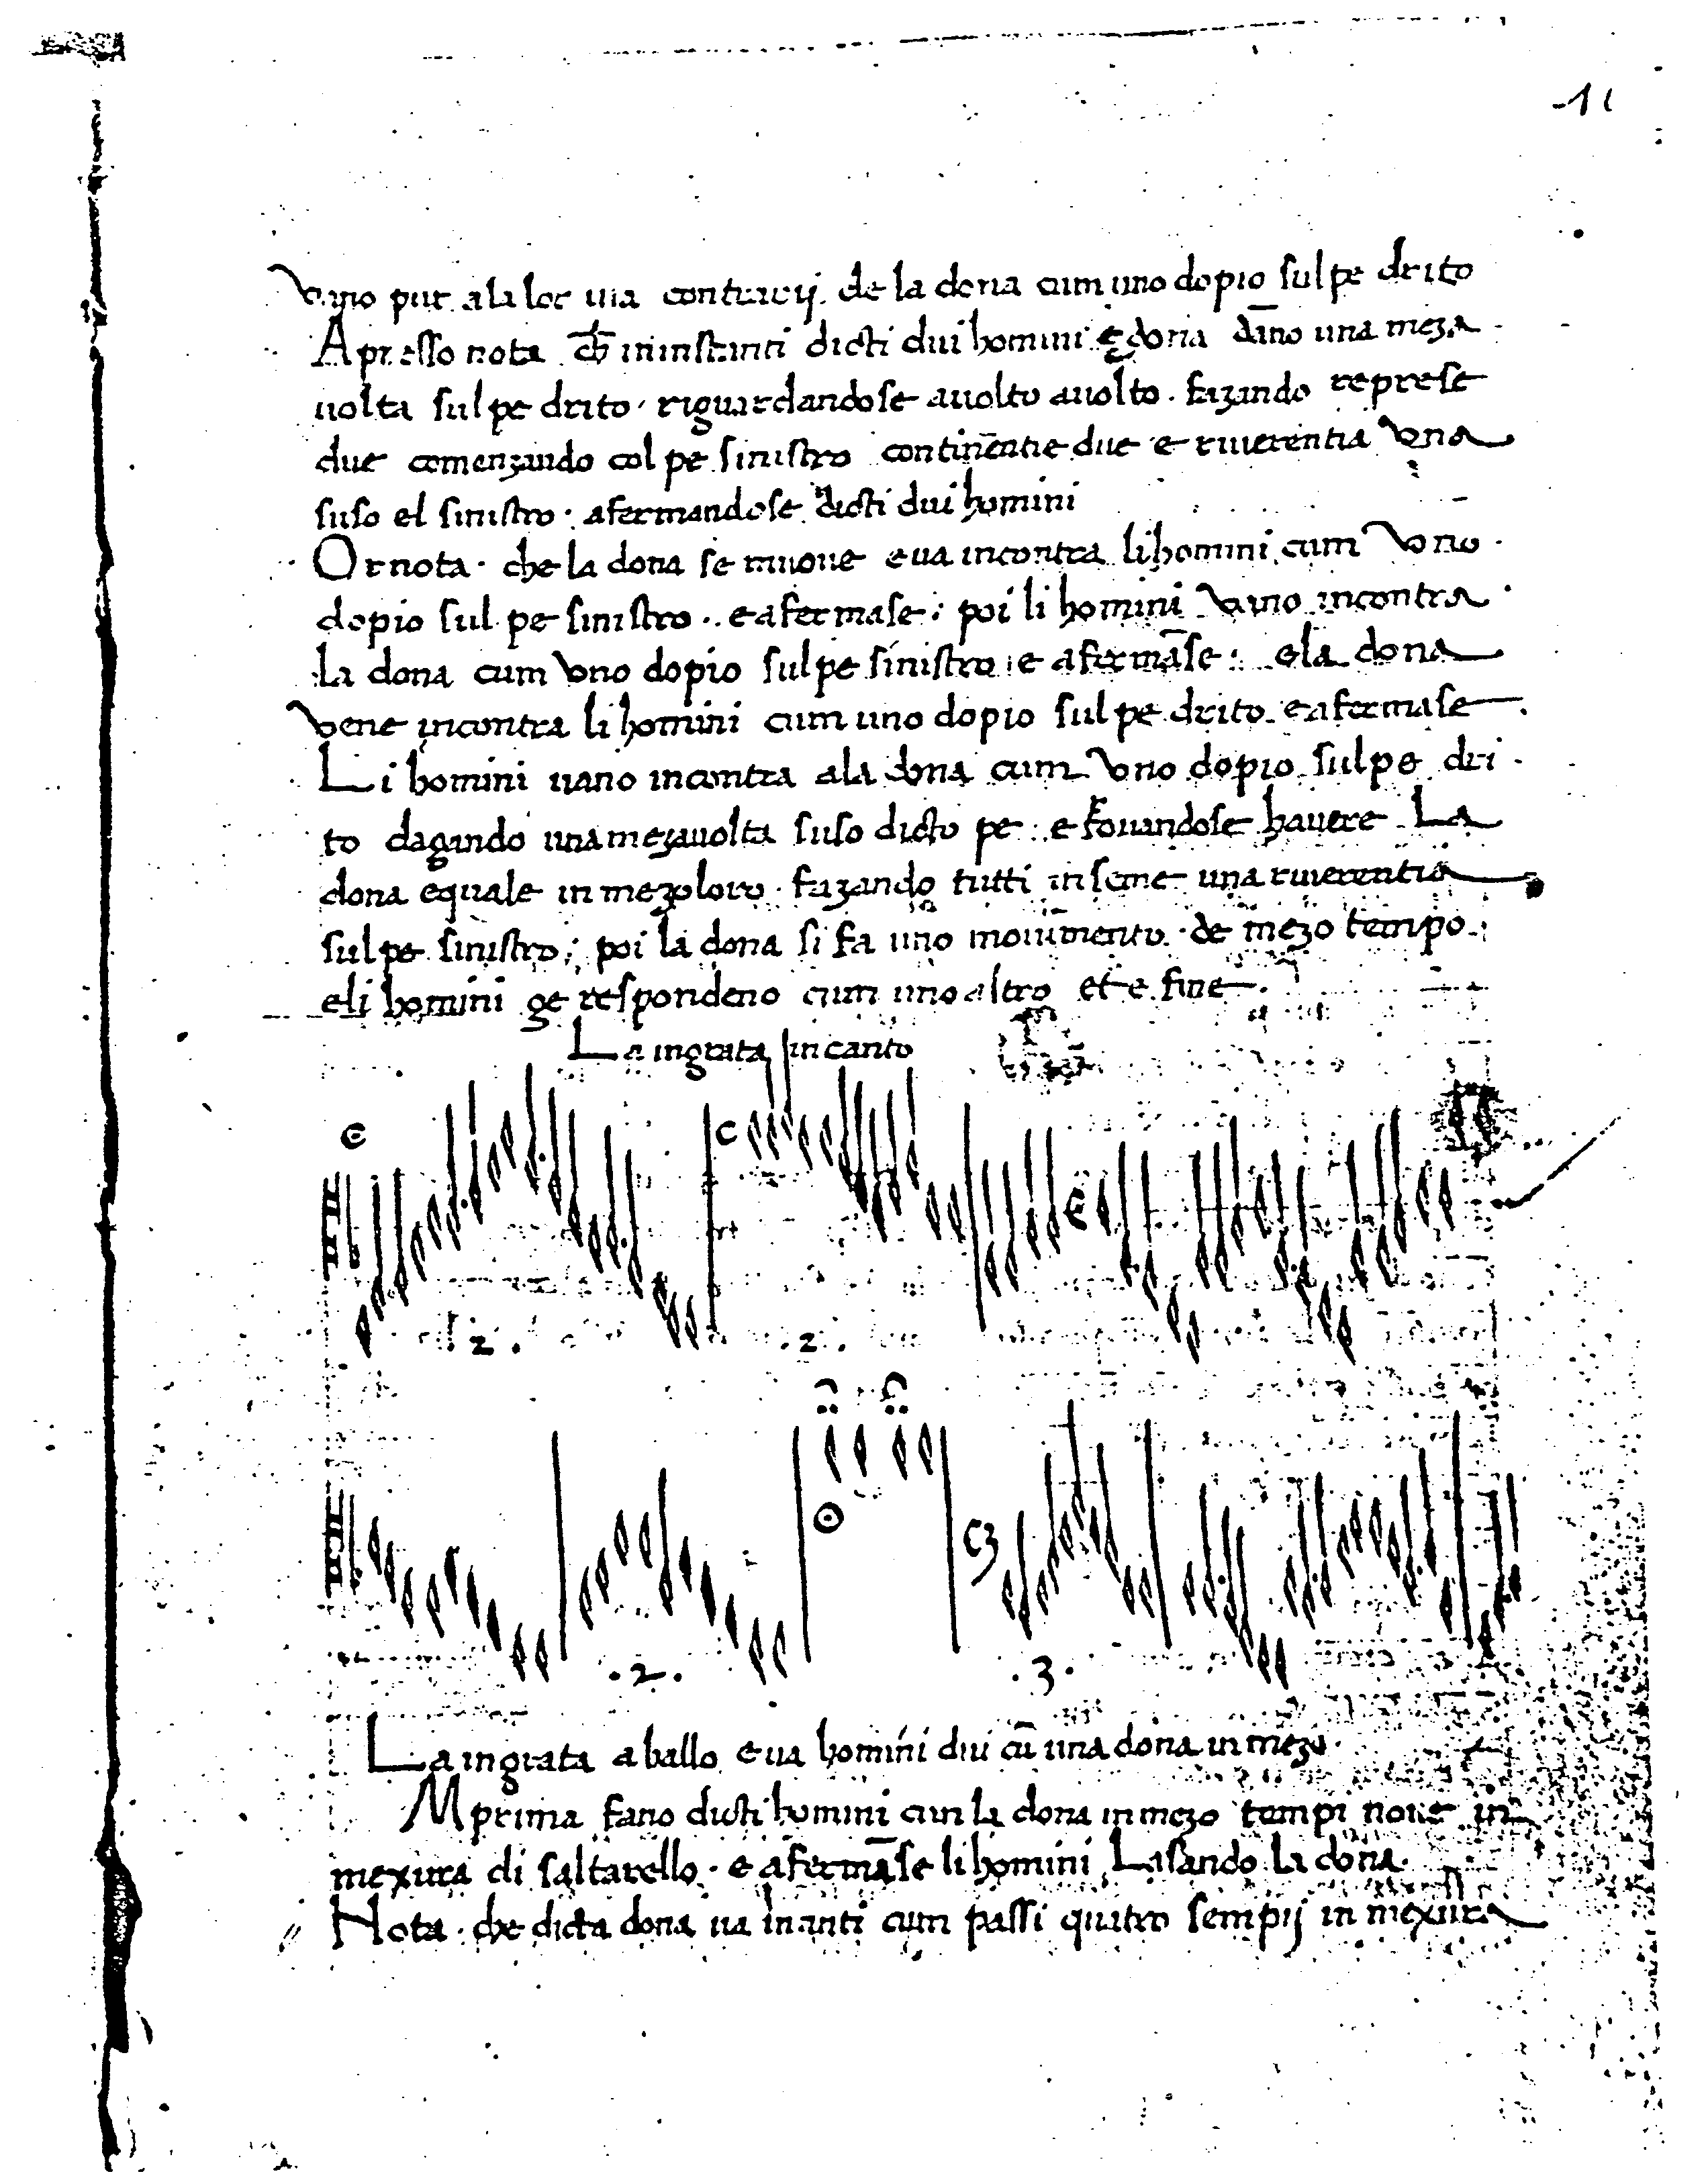 11
Vano pur ala lor via contrarij de la dona cum uno dopio sul pe drito
Apresso nota ch̄ ininstanti dicti dui homini e dona dāno una meza
uolta sul pe drito · riguardandose auolto auolto · fazando represe
due comenzando col pe sinistro continēntie due e riuerentia Vna
suso el sinistro · afermandose dicti dui homini
Or nota · che la dona se muoue e ua incontra li homini cum Vno ·
dopio sul pe sinistro · e afermase : poi li homini Vano incontra ·
la dona cum Vno dopio sul pe sinistro e afermāse : e la dona
Vene incontra li homini cum uno dopio sul pe drito e afermase .
Li homini uano incontra ala dona cum Vno dopio sul pe dri ·
to dagando una mezauolta suso dicto pe : e trouandose hauere La
dona equale in mezo loro · fazando tutti inseme una riuerentia
sul pe sinistro ; poi la dona si fa uno mouimento · de mezo tempo
e li homini ge respondeno cum uno altro et e fine .
La ingrata in canto
. 2 . . 2 .
. 2 . . 3 .
La ingrata a ballo e ua homini dui cū una dona in mezo ·
Mprima fano dicti homini cun la dona in mezo tempi noue in
mexura di saltarello · e afermāse li homini Lasando la dona ·
Nota · che dicta dona ua inanti cum passi quatro sempij in mexura